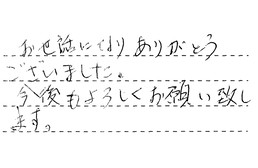 お世話になりありがとう
ございました。
今後もよろしくお願い致し
ます。